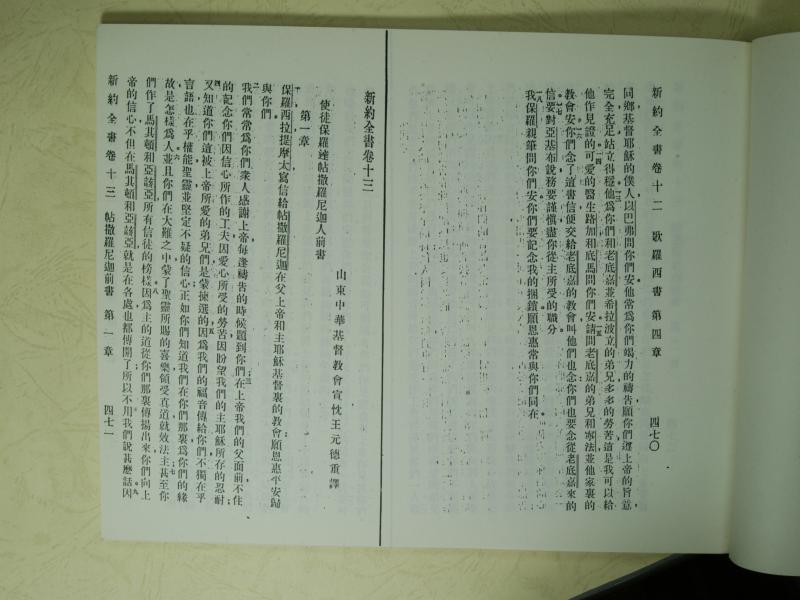 新約全書卷十二 歌羅西書 第四章 四七〇
同鄉基督耶穌的僕人以巴弗問你們安他常爲你們竭力的禱告願你們遵上帝的旨意
完全充足站立得穩他爲你們和老底嘉並希拉波立的弟兄多多的勞苦這是我可以給
他作見證的可愛的醫生路加和底馬問你們安請問老底嘉的弟兄和寧法並他家裏的
教會安你們念了這書信便交給老底嘉的教會叫他們也念你們也要念從老底嘉來的
信要對亞基布說務要謹愼盡你從主所受的職分
我保羅親筆問你們安你們要記念我的捆鎖願恩惠常與你們同在
新約全書卷十三
山東中華基督教會宣忱王元德重譯
使徒保羅達帖撒羅尼迦人前書
第一章
保羅西拉提摩太寫信給帖撒羅尼迦在父上帝和主耶穌基督裏的教會願恩惠平安歸
與你們
我們常常爲你們衆人感謝上帝每逢禱告的時候題到你們在上帝我們的父面前不住
的記念你們因信心所作的工夫因愛心所受的勞苦因盼望我們的主耶穌所存的忍耐
又知道你們這被上帝所愛的弟兄們是蒙揀選的因爲我們的福音傳給你們不獨在乎
言語也在乎權能聖靈並堅定不疑的信心正如你們知道我們在你們那裏爲你們的緣
故是怎樣爲人並且你們在大難之中蒙了聖靈所賜的喜樂領受眞道就效法主甚至你
們作了馬其頓和亞該亞所有信徒的榜樣因爲主的道從你們那裏傳揚出來你們向上
帝的信心不但在馬其頓和亞該亞就是在各處也都傳開了所以不用我們說甚麽話因
新約全書卷十三 帖撒羅尼迦前書 第一章 四七一